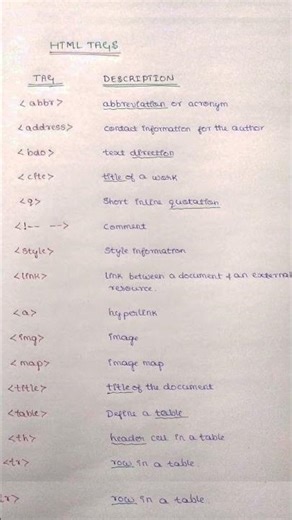 HTML TAGS
TAG DESCRIPTION
<abbr> abbreviation or acronym
<address> contact information for the author
<bdo> text direction
<cite> title of a work
<q> Short inline quotation
<!-- --> Comment
<style> Style information
<link> link between a document & an external
resource.
<a> hyperlink
<img> image
<map> image map
<title> title of the document
<table> Define a table
<th> header cell in a table
<tr> row in a table.
r> row in a table.